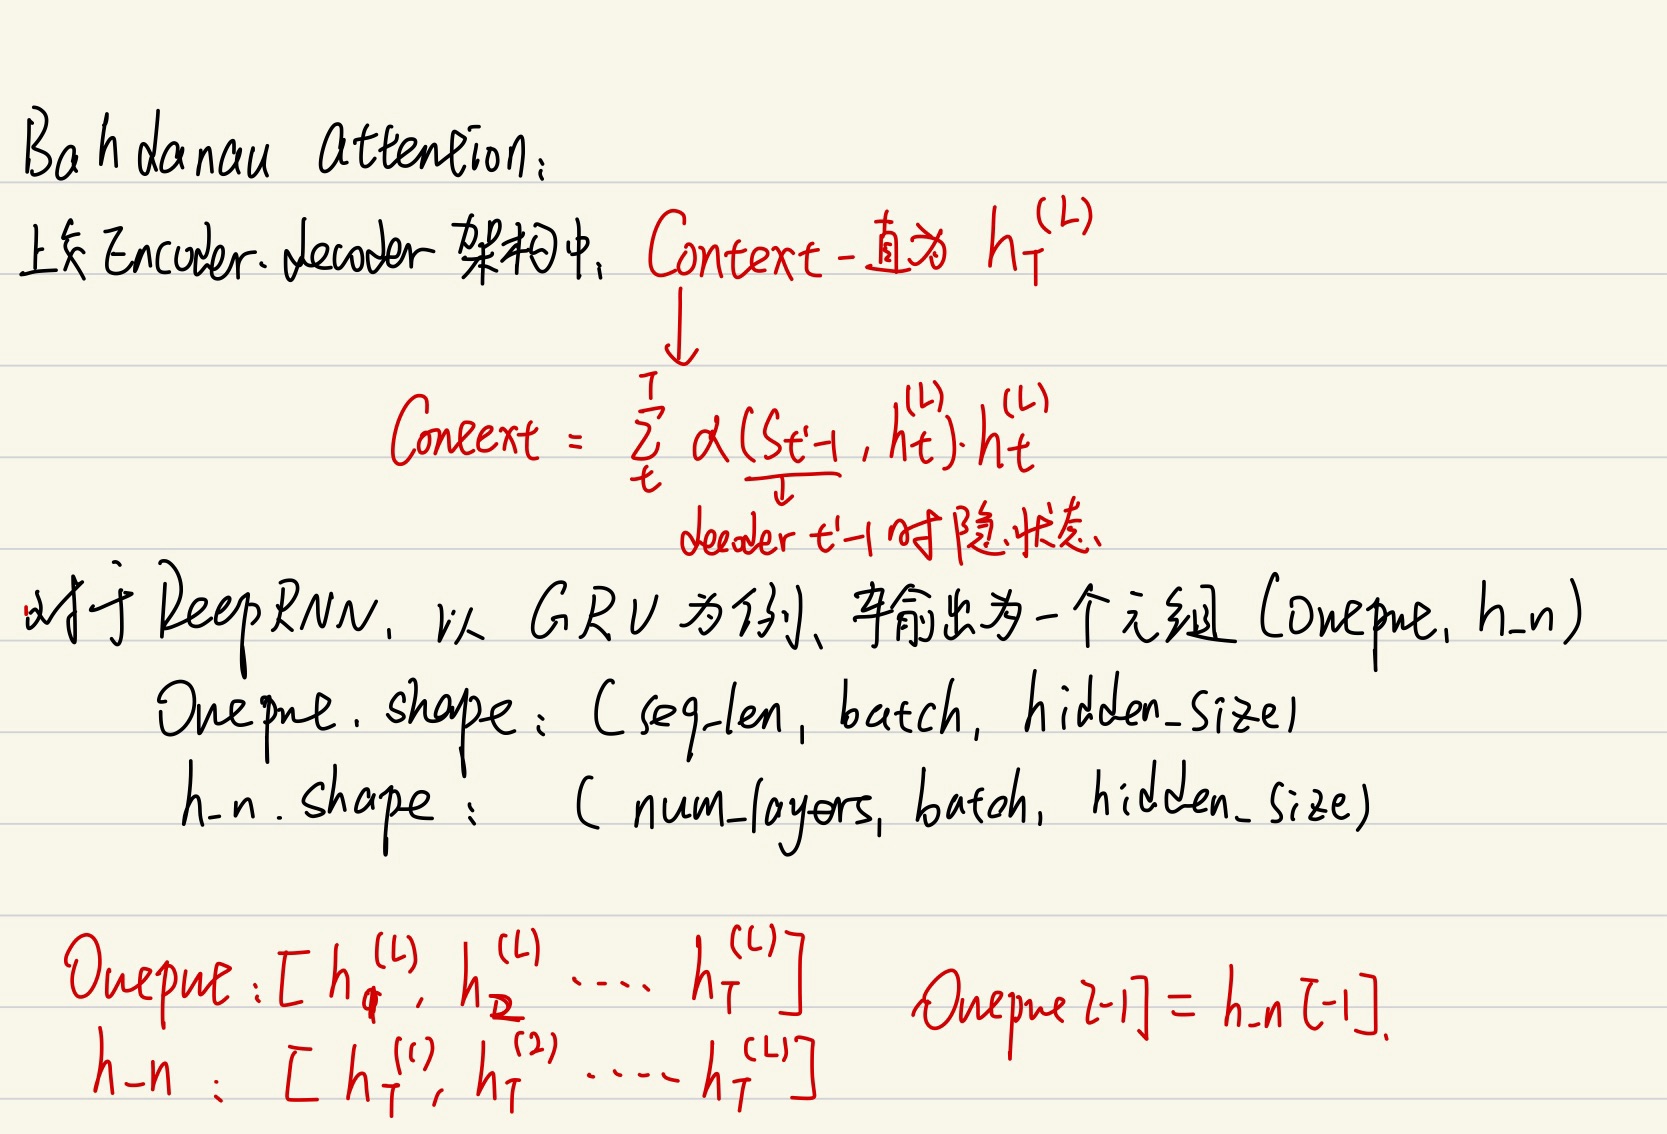 Bahdanau attention:
上矣 Encoder. decoder 架构中, Context 一直为 h_T^(L)
↓
Context = Σ_t^T α(S_t'-1, h_t^(L))·h_t^(L)
↓
decoder t'-1 时隐状态、
对于 DeepRNN, 以 GRU 为例、其输出为一个元组 (Output, h_n)
Output. shape: (seq_len, batch, hidden_size)
h_n. shape: (num_layers, batch, hidden_size)
Output: [h_1^(L), h_2^(L) ···· h_T^(L)] Output[-1] = h_n[-1].
h_n: [h_T^(1), h_T^(2) ···· h_T^(L)]